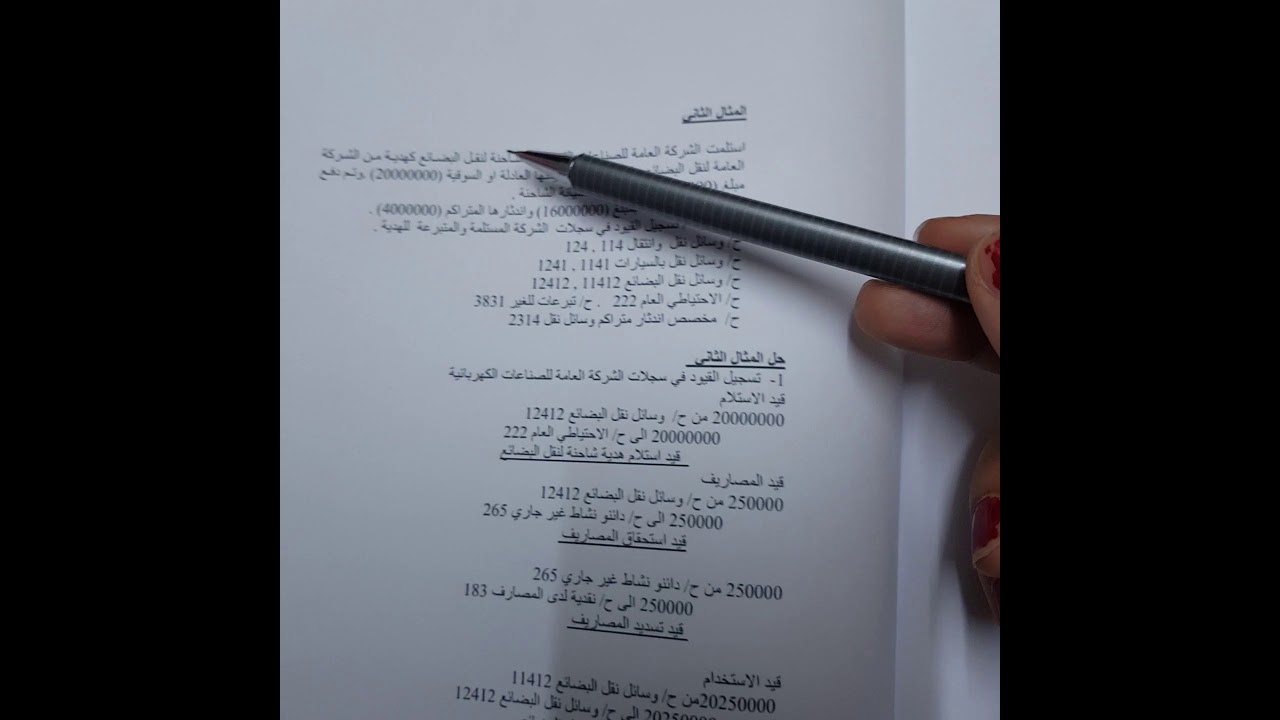 المثال الثاني
استلمت الشركة العامة للصناعات شاحنة لنقل البضائع كهدية من الشركة
العامة لنقل البضائع العادلة او السوقية (20000000) .وتم دفع
مبلغ الشاحنة .
بمبلغ (16000000) واندثارها المتراكم (4000000) .
تسجيل القيود في سجلات الشركة المستلمة والمتبرعة للهدية .
ح/ وسائل نقل وانتقال 114 , 124
ح/ وسائل نقل بالسيارات 1141 , 1241
ح/ وسائل نقل البضائع 11412 , 12412
ح/ الاحتياطي العام 222 . ح/ تبرعات للغير 3831
ح/ مخصص اندثار متراكم وسائل نقل 2314
حل المثال الثاني
1- تسجيل القيود في سجلات الشركة العامة للصناعات الكهربائية
قيد الاستلام
20000000 من ح/ وسائل نقل البضائع 12412
20000000 الى ح/ الاحتياطي العام 222
قيد استلام هدية شاحنة لنقل البضائع
قيد المصاريف
250000 من ح/ وسائل نقل البضائع 12412
250000 الى ح/ دائنو نشاط غير جاري 265
قيد استحقاق المصاريف
250000 من ح/ دائنو نشاط غير جاري 265
250000 الى ح/ نقدية لدى المصارف 183
قيد تسديد المصاريف
قيد الاستخدام
20250000من ح/ وسائل نقل البضائع 11412
20250000 الى ح/ وسائل نقل البضائع 12412